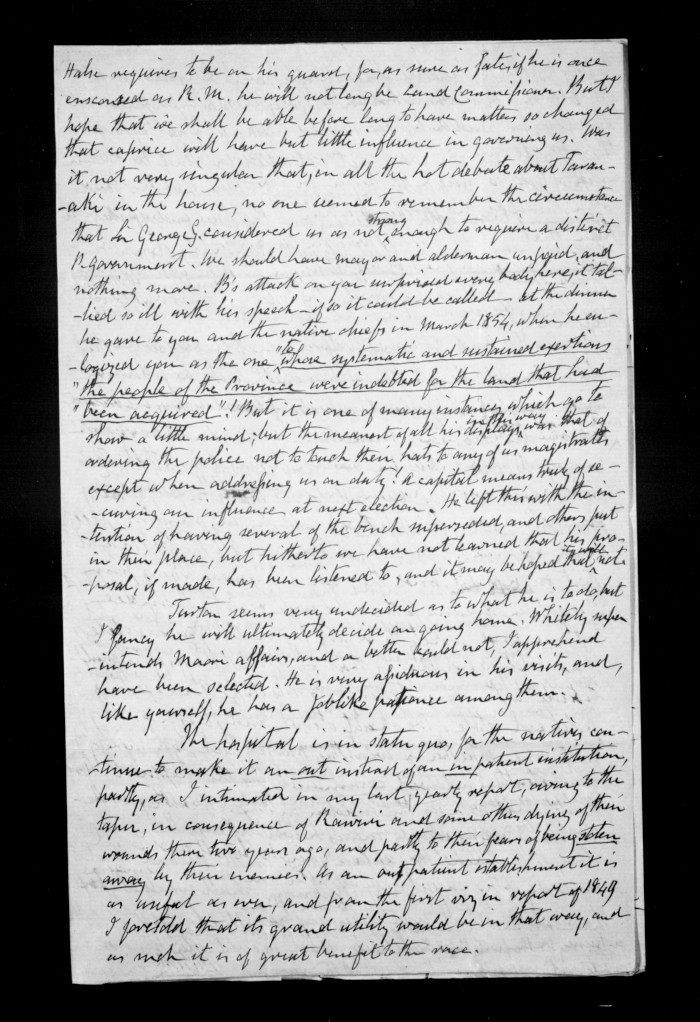 Halse requires to be on his guard, for, as sure as fate, if he is once
ensconced as R. M. he will not long be Land Commissioner. But I
hope that we shall be able before long to have matters so changed
that caprice will have but little influence in governing us. Was
it not very singular that, in all the hot debate about Taran-
-aki in the house, no one seemed to remember the circumstance
that Sir George G. considered us as not strong enough to require a distinct
P. government. We should have mayor and alderman unpaid, and
nothing more. B's attack on you surprised every body here, it tal-
-lied so ill with his speech - if so it could be called - at the dinner
he gave to you and the native chiefs in March 1854, when he eu-
-logized you as the one "to whose systematic and sustained exertions
"the people of the Province were indebted for the land that had
"been acquired"! But it is one of many instances which go to
show a little mind; but the meanest of all his displays in this way was that of
ordering the police not to touch their hats to any of us magistrates
except when addressing us on duty! A capital means truly of se-
-curing our influence at next election. He left this with the in-
-tention of having several of the bench superseded, and others put
in their place, but hitherto we have not learned that his pro-
-posal, if made, has been listened to, and it may be hoped that it will not.
Turton seems very undecided as to what he is to do, but
I fancy he will ultimately decide on going home. Whitely super
-intends Maori affairs, and a better could not, I apprehend
have been selected. He is very assiduous in his visits, and,
like yourself, he has a Joblike patience among them.
The hospital is in statu quo, for the natives con-
-tinue to make it an out instead of an in patient institution,
partly, as I intimated in my last yearly report, owing to the
tapu, in consequence of Rawiri and some others dying of their
wounds there two years ago, and partly to their fears of being stolen
away by their enemies. As an out patient establishment it is
as useful as ever, and from the first viz in report of 1849
I foretold that its grand utility would be in that way, and
as such it is of great benefit to the race.